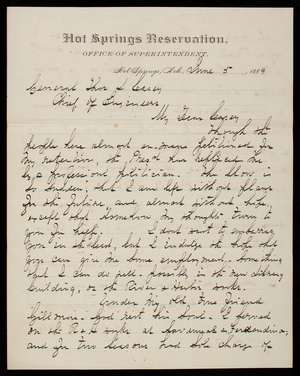 Hot Springs Reservation,
OFFICE OF SUPERINTENDENT.
Hot Springs, Ark. June 5 1889
General Thos L Casey
Chief of Engineers
My Dear Casey
Though the
people here almost en-masse petitioned for
my retention, the Prest has replaced me
by a professional politician. The blow is
so sudden, that I am left without plans
for the future, and almost without hope,
except that somehow, my thoughts turn to
you for help. I don't want to embarrass
you in the least, but I indulge the hope that
you can give me some employment. Something
that I can do well. possibly in the new Library
building, or the River & Harbor, works.
Under my, old, true friend
Gillmore. God rest his Soul. I served
on the R & H works at Savannah & Fernandina,
and for two seasons had sole charge of